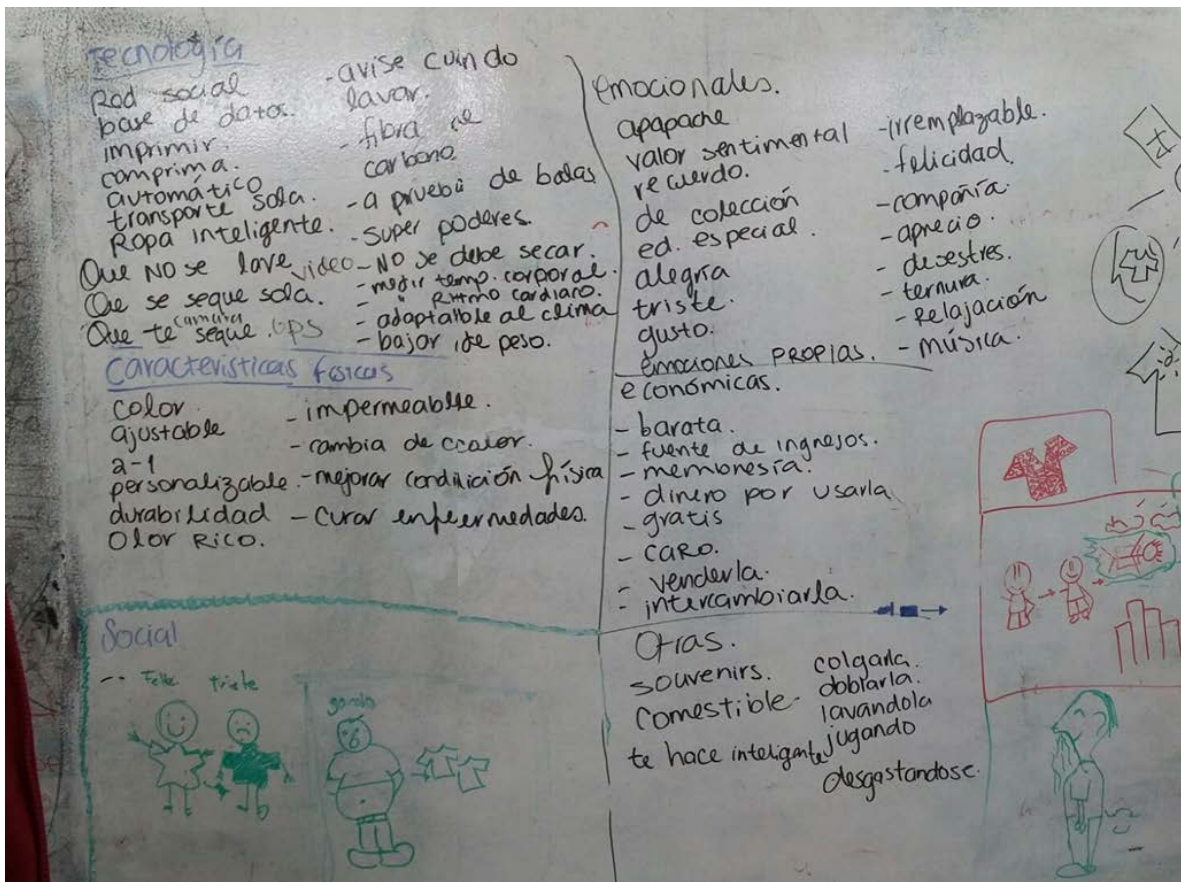 Tecnología
Red social
base de datos.
imprimir.
comprima.
automático
transporte sola.
Ropa inteligente.
Que NO se lave video
Que se seque sola.
camara
Que te seque. GPS
- avise cuando
lavar.
- fibra de
carbono.
- a prueba de balas
- super poderes.
- NO se debe secar.
- medir temp. corporal.
- " Ritmo cardiaco.
- adaptable al clima
- bajar de peso.
Características físicas
color.
ajustable
2-1
personalizable.
durabilidad
Olor Rico.
- impermeable.
- cambia de color.
- mejorar condición física
- curar enfermedades.
emocionales.
apapache
valor sentimental
recuerdo.
de colección
ed. especial.
alegría
triste.
gusto.
emociones PROPIAS.
- irremplazable.
- felicidad.
- compañía.
- aprecio.
- desestres.
- ternura.
- Relajación
- música.
económicas.
- barata.
- fuente de ingresos.
- membresía.
- dinero por usarla
- gratis
- CARO.
- venderla.
- intercambiarla.
Social
Feliz triste
gordo
Otras.
souvenirs.
comestible
te hace inteligente
colgarla.
doblarla.
lavandola
jugando
desgastandose.